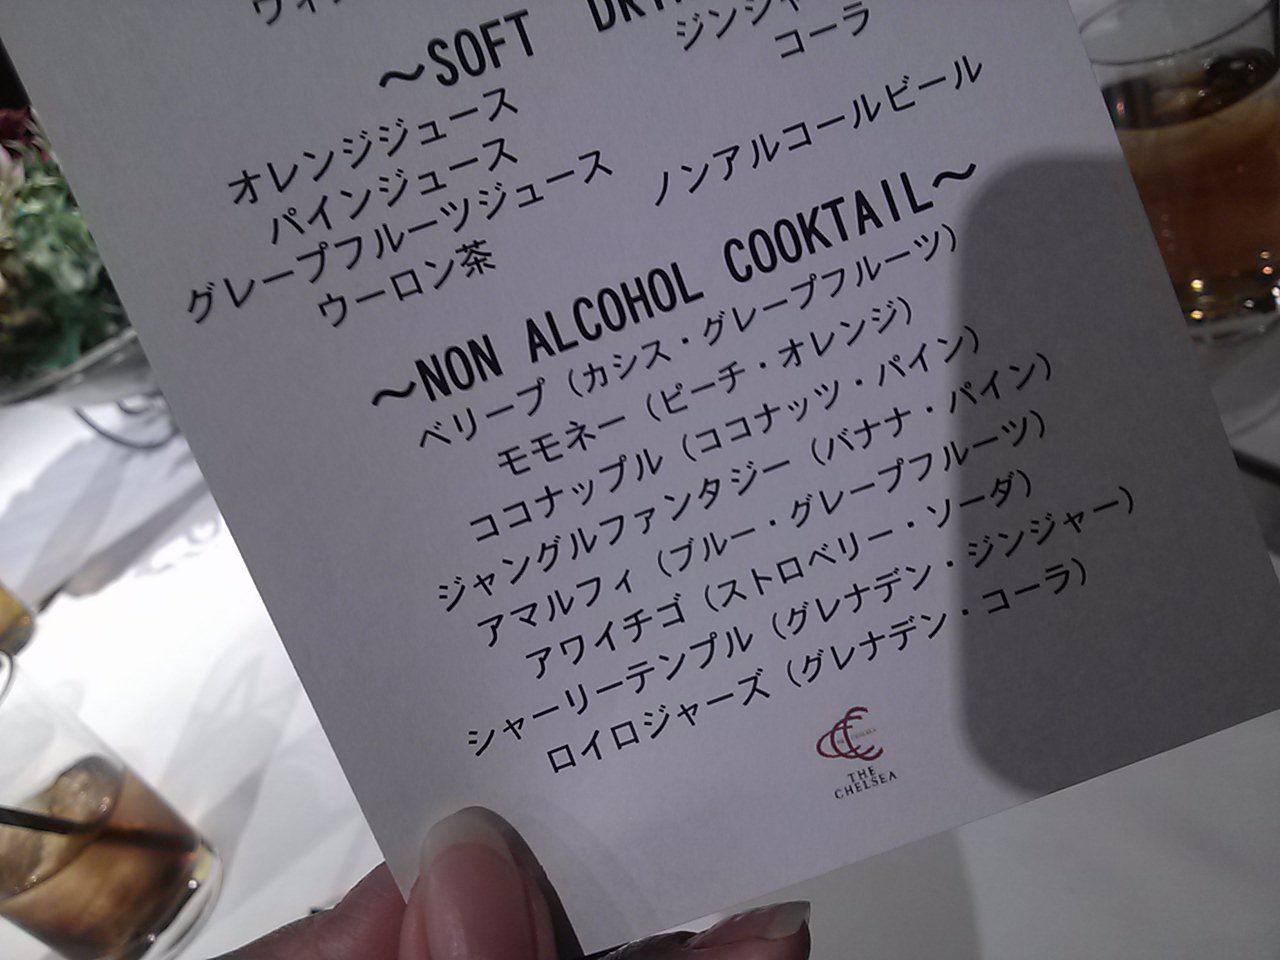 ～SOFT
ジンジャ
コーラ
オレンジジュース
パインジュース
グレープフルーツジュース
ノンアルコールビール
ウーロン茶
～NON ALCOHOL COOKTAIL～
ベリープ（カシス・グレープフルーツ）
モモネー（ピーチ・オレンジ）
ココナップル（ココナッツ・パイン）
ジャングルファンタジー（バナナ・パイン）
アマルフィ（ブルー・グレープフルーツ）
アワイチゴ（ストロベリー・ソーダ）
シャーリーテンプル（グレナデン・ジンジャー）
ロイロジャーズ（グレナデン・コーラ）
THE
CHELSEA